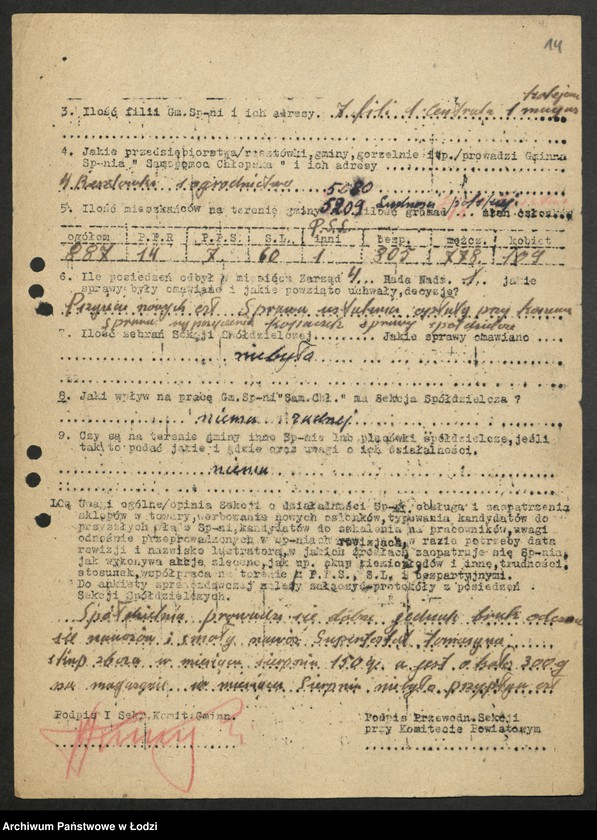 14
3. Ilość filii Gm.Sp-ni i ich adresy. 7 fili 1 Centrala 1
4. Jakie przedsiębiorstwa/resztówki,gminy,gorzelnie itp./prowadzi Gminna
Sp-nia " Samopomoc Chłopska " i ich adresy
ogrodnictwo
5080
5. Ilość mieszkańców na terenie gminy 5209 ilość gromad stan członk.
P.S.L.
ogółem P.P.R P.P.S. S.L. inni bezp. mężcz. kobiet
887 14 7 60 1 805 778 109
6. Ile posiedzeń odbył w miesiącu Zarząd 4 Rada Nadz. 1. jakie
sprawy były omawiane i jakie powzięto uchwały,decyzje?
Przyjęcie nowych czł. Sprawa
sprawy
7. Ilość zebrań Sekcji Spółdzielczej Jakie sprawy omawiano
niebyło
8. Jaki wpływ na pracę Gm.Sp-ni"Sam.Chł." ma Sekcja Spółdzielcza ?
niema żadnej
9. Czy są na terenie gminy inne Sp-nie lub placówki spółdzielcze,jeśli
tak to podać jakie i gdzie oraz uwagi o ich działalności.
niema
10. Uwagi ogólne/opinia Sekcji o działalności Sp-ni obsługa i zaopatrzenie
sklepów w towary,werbowanie nowych członków,typowania kandydatów do
przyszłych władz Sp-ni,kandydatów do szkolenia na pracowników,uwagi
odnośnie przeprowadzonych w sp-niach rewizjach,w razie potrzeby data
rewizji i nazwisko lustratora,w jakich źródłach zaopatruje się Sp-nia,
jak wykonywa akcje zlecone,jak np. skup ziemiopłodów i inne,trudności,
stosunek,współpraca na terenie z P.P.S., S.L. i bezpartyjnymi.
Do ankiety sprawozdawczej należy załączyć protokóły z posiedzeń
Sekcji Spółdzielczych.
Spółdzielnia prowadzi się dobrze jednak brak
się nawozów i smoły nawóz Supertosfat tomasyna
skup zboża w miesiącu sierpniu 150 q. a jest o.koło 300 q
na magazynie w miesiącu Sierpniu niebyło przypływ czł
Podpis I Sekr.Komit.Gminn.
Podpis Przewodn.Sekcji
przy Komitecie Powiatowym
Archiwum Państwowe w Łodzi